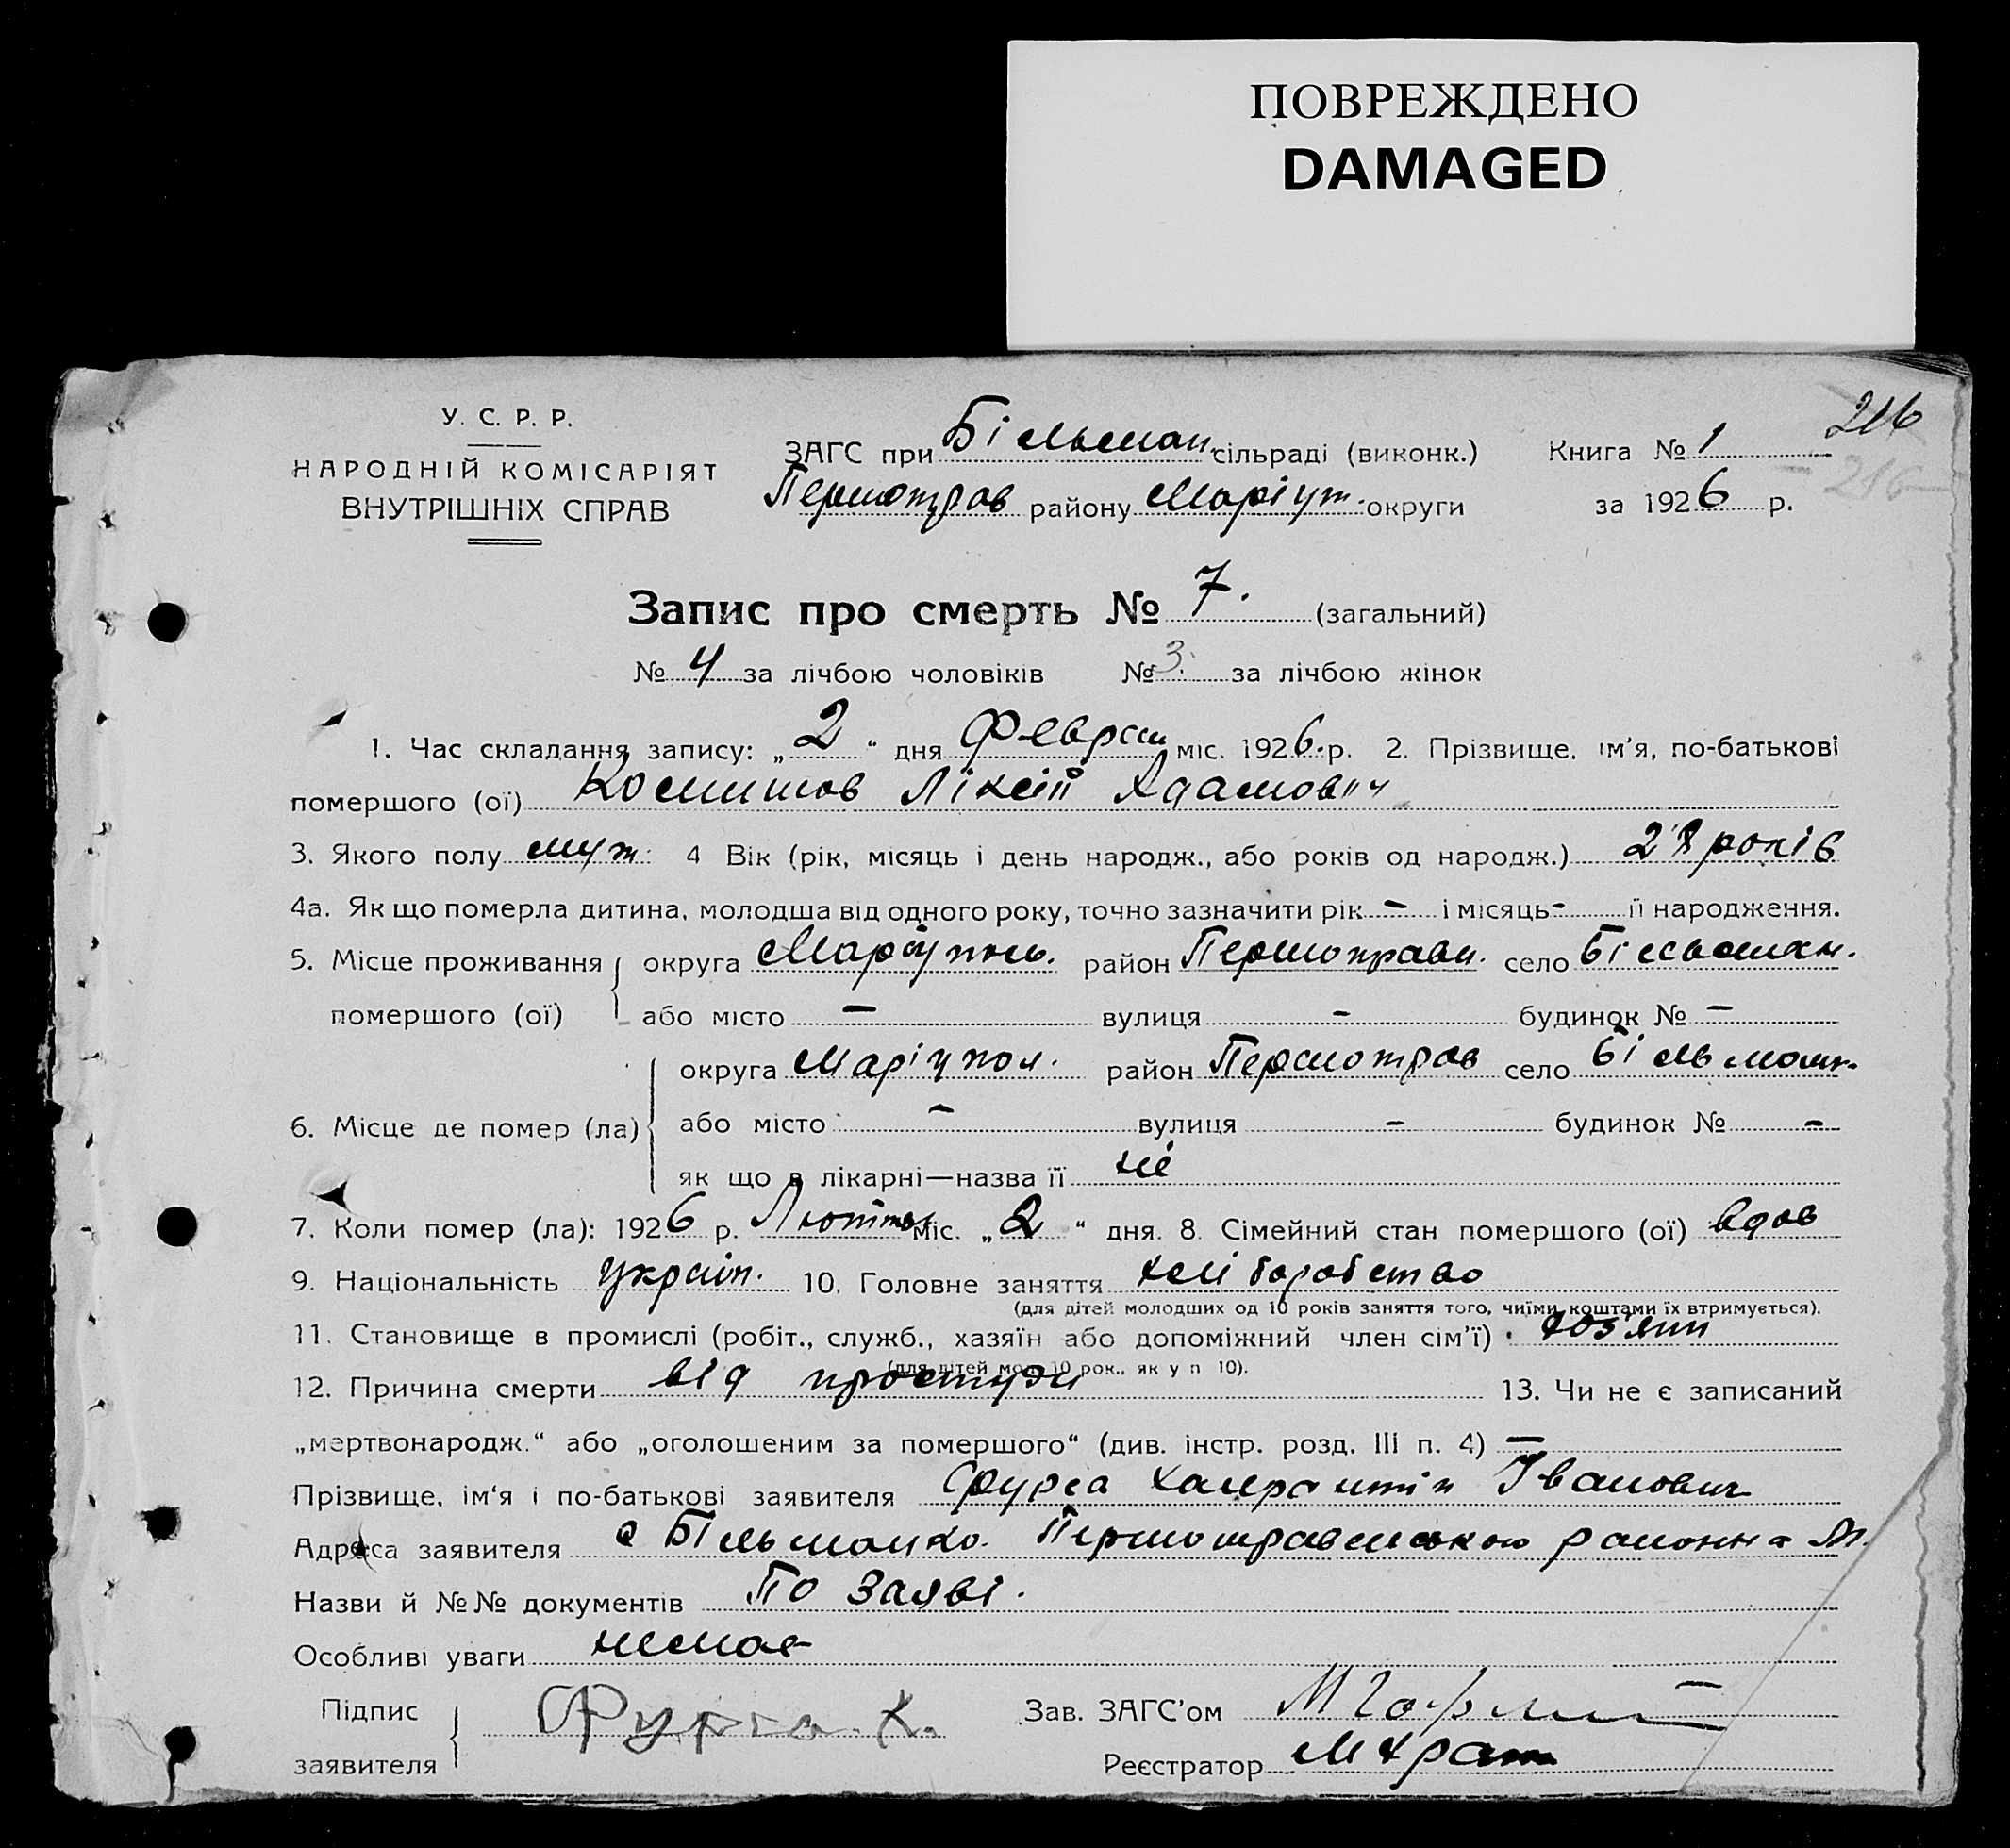 ПОВРЕЖДЕНО
DAMAGED
216
У. С. Р. Р.
НАРОДНІЙ КОМІСАРІЯТ
ВНУТРІШНІХ СПРАВ
ЗАГС при Більман. сільраді (виконк.) Книга № 1
216
Першотрав району Маріуп. округи за 1926 р.
Запис про смерть № 7. (загальний)
№ 4 за лічбою чоловіків № 3. за лічбою жінок
1. Час складання запису: „2“ дня Феврал міс. 1926. р. 2. Прізвище, ім'я, по-батькові
помершого (ої) Адамович
3. Якого полу муж. 4 Вік (рік, місяць і день народж., або років од народж.) 28 років
4а. Як що померла дитина, молодша від одного року, точно зазначити рік – і місяць - її народження.
5. Місце проживання округа Маріуполь. район Першотравн. село Більман.
помершого (ої) або місто – вулиця – будинок № –
округа Маріупол. район Першотрав село Більманк.
6. Місце де помер (ла) або місто – вулиця – будинок № –
як що в лікарні—назва її ні
7. Коли помер (ла): 1926 р. міс. „2“ дня. 8. Сімейний стан помершого (ої) вдов
9. Національність Україн. 10. Головне заняття хліборобство
(для дітей молодших од 10 років заняття того, чиїми коштами їх втримується).
11. Становище в промислі (робіт., служб., хазяїн або допоміжний член сім'ї)
(для дітей мол. 10 рок., як у п 10).
12. Причина смерти від простуди 13. Чи не є записаний
„мертвонародж.“ або „оголошеним за помершого“ (див. інстр. розд. III п. 4) –
Прізвище, ім'я і по-батькові заявителя Фурса Іванович
Адреса заявителя с Більманко. Першотравенського району М.
Назви й №№ документів По заяві.
Особливі уваги немає
Підпис заявителя Фурса. Х. Зав. ЗАГС'ом
Реєстратор